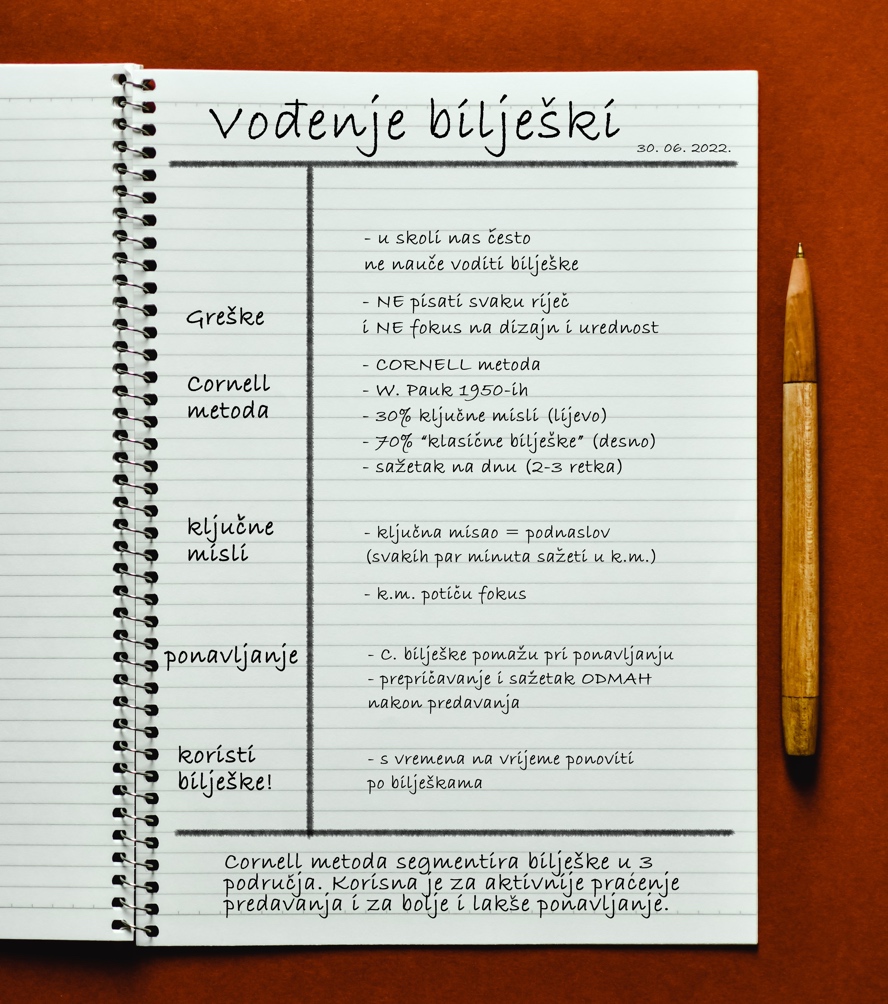 Vođenje bilješki
30. 06. 2022.
- u skoli nas često
ne nauče voditi bilješke
- NE pisati svaku riječ
Greške
i NE fokus na dizajn i urednost
- CORNELL metoda
Cornell
metoda
- W. Pauk 1950-ih
- 30% ključne misli (lijevo)
- 70% “klasične bilješke” (desno)
- sažetak na dnu (2-3 retka)
ključne
misli
- ključna misao = podnaslov
(svakih par minuta sažeti u k.m.)
- k.m. potiču fokus
ponavljanje
- C. bilješke pomažu pri ponavljanju
- prepričavanje i sažetak ODMAH
nakon predavanja
koristi
bilješke!
- s vremena na vrijeme ponoviti
po bilješkama
Cornell metoda segmentira bilješke u 3
područja. Korisna je za aktivnije praćenje
predavanja i za bolje i lakše ponavljanje.